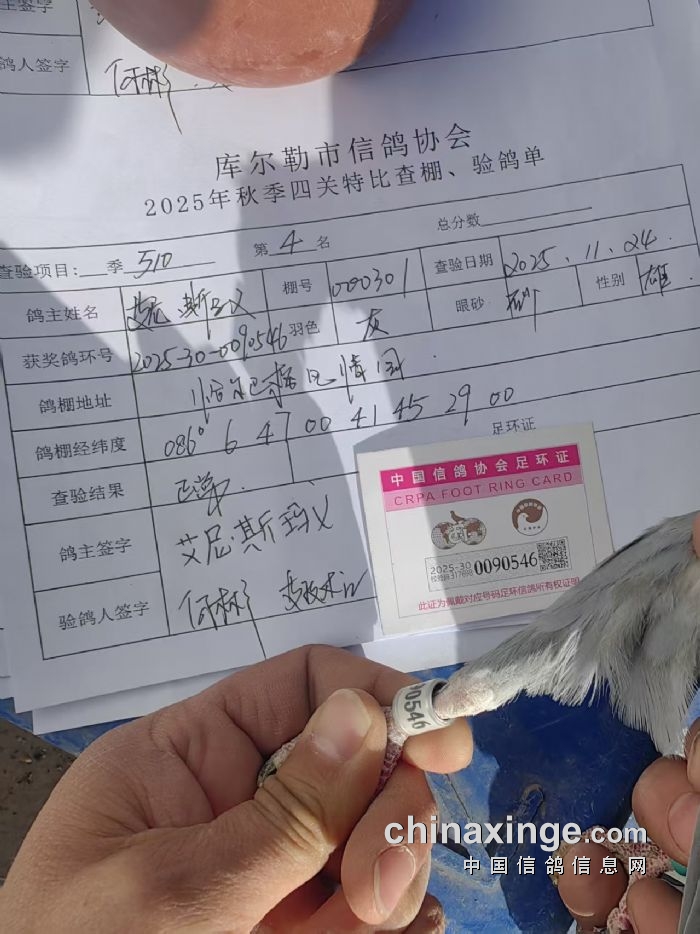 主签字
鸽人签字 何彬
库尔勒市信鸽协会
2025年秋季四关特比查棚、验鸽单
总分数
查验项目: 季 510 第 4 名
鸽主姓名 艾尼·斯玛义 棚号 000301 查验日期 2025.11.24.
获奖鸽环号 2025-30-0090546 羽色 灰 眼砂 砂 性别 雄
鸽棚地址
鸽棚经纬度 086° 6 47 00 41 45 29 00
查验结果 正常. 足环证
鸽主签字 艾尼·斯玛义
验鸽人签字 何彬
中国信鸽协会足环证
CRPA FOOT RING CARD
2025-30 0090546
此证为佩戴对应号码足环信鸽所有权证明
90546
chinaxinge.com
中国信鸽信息网